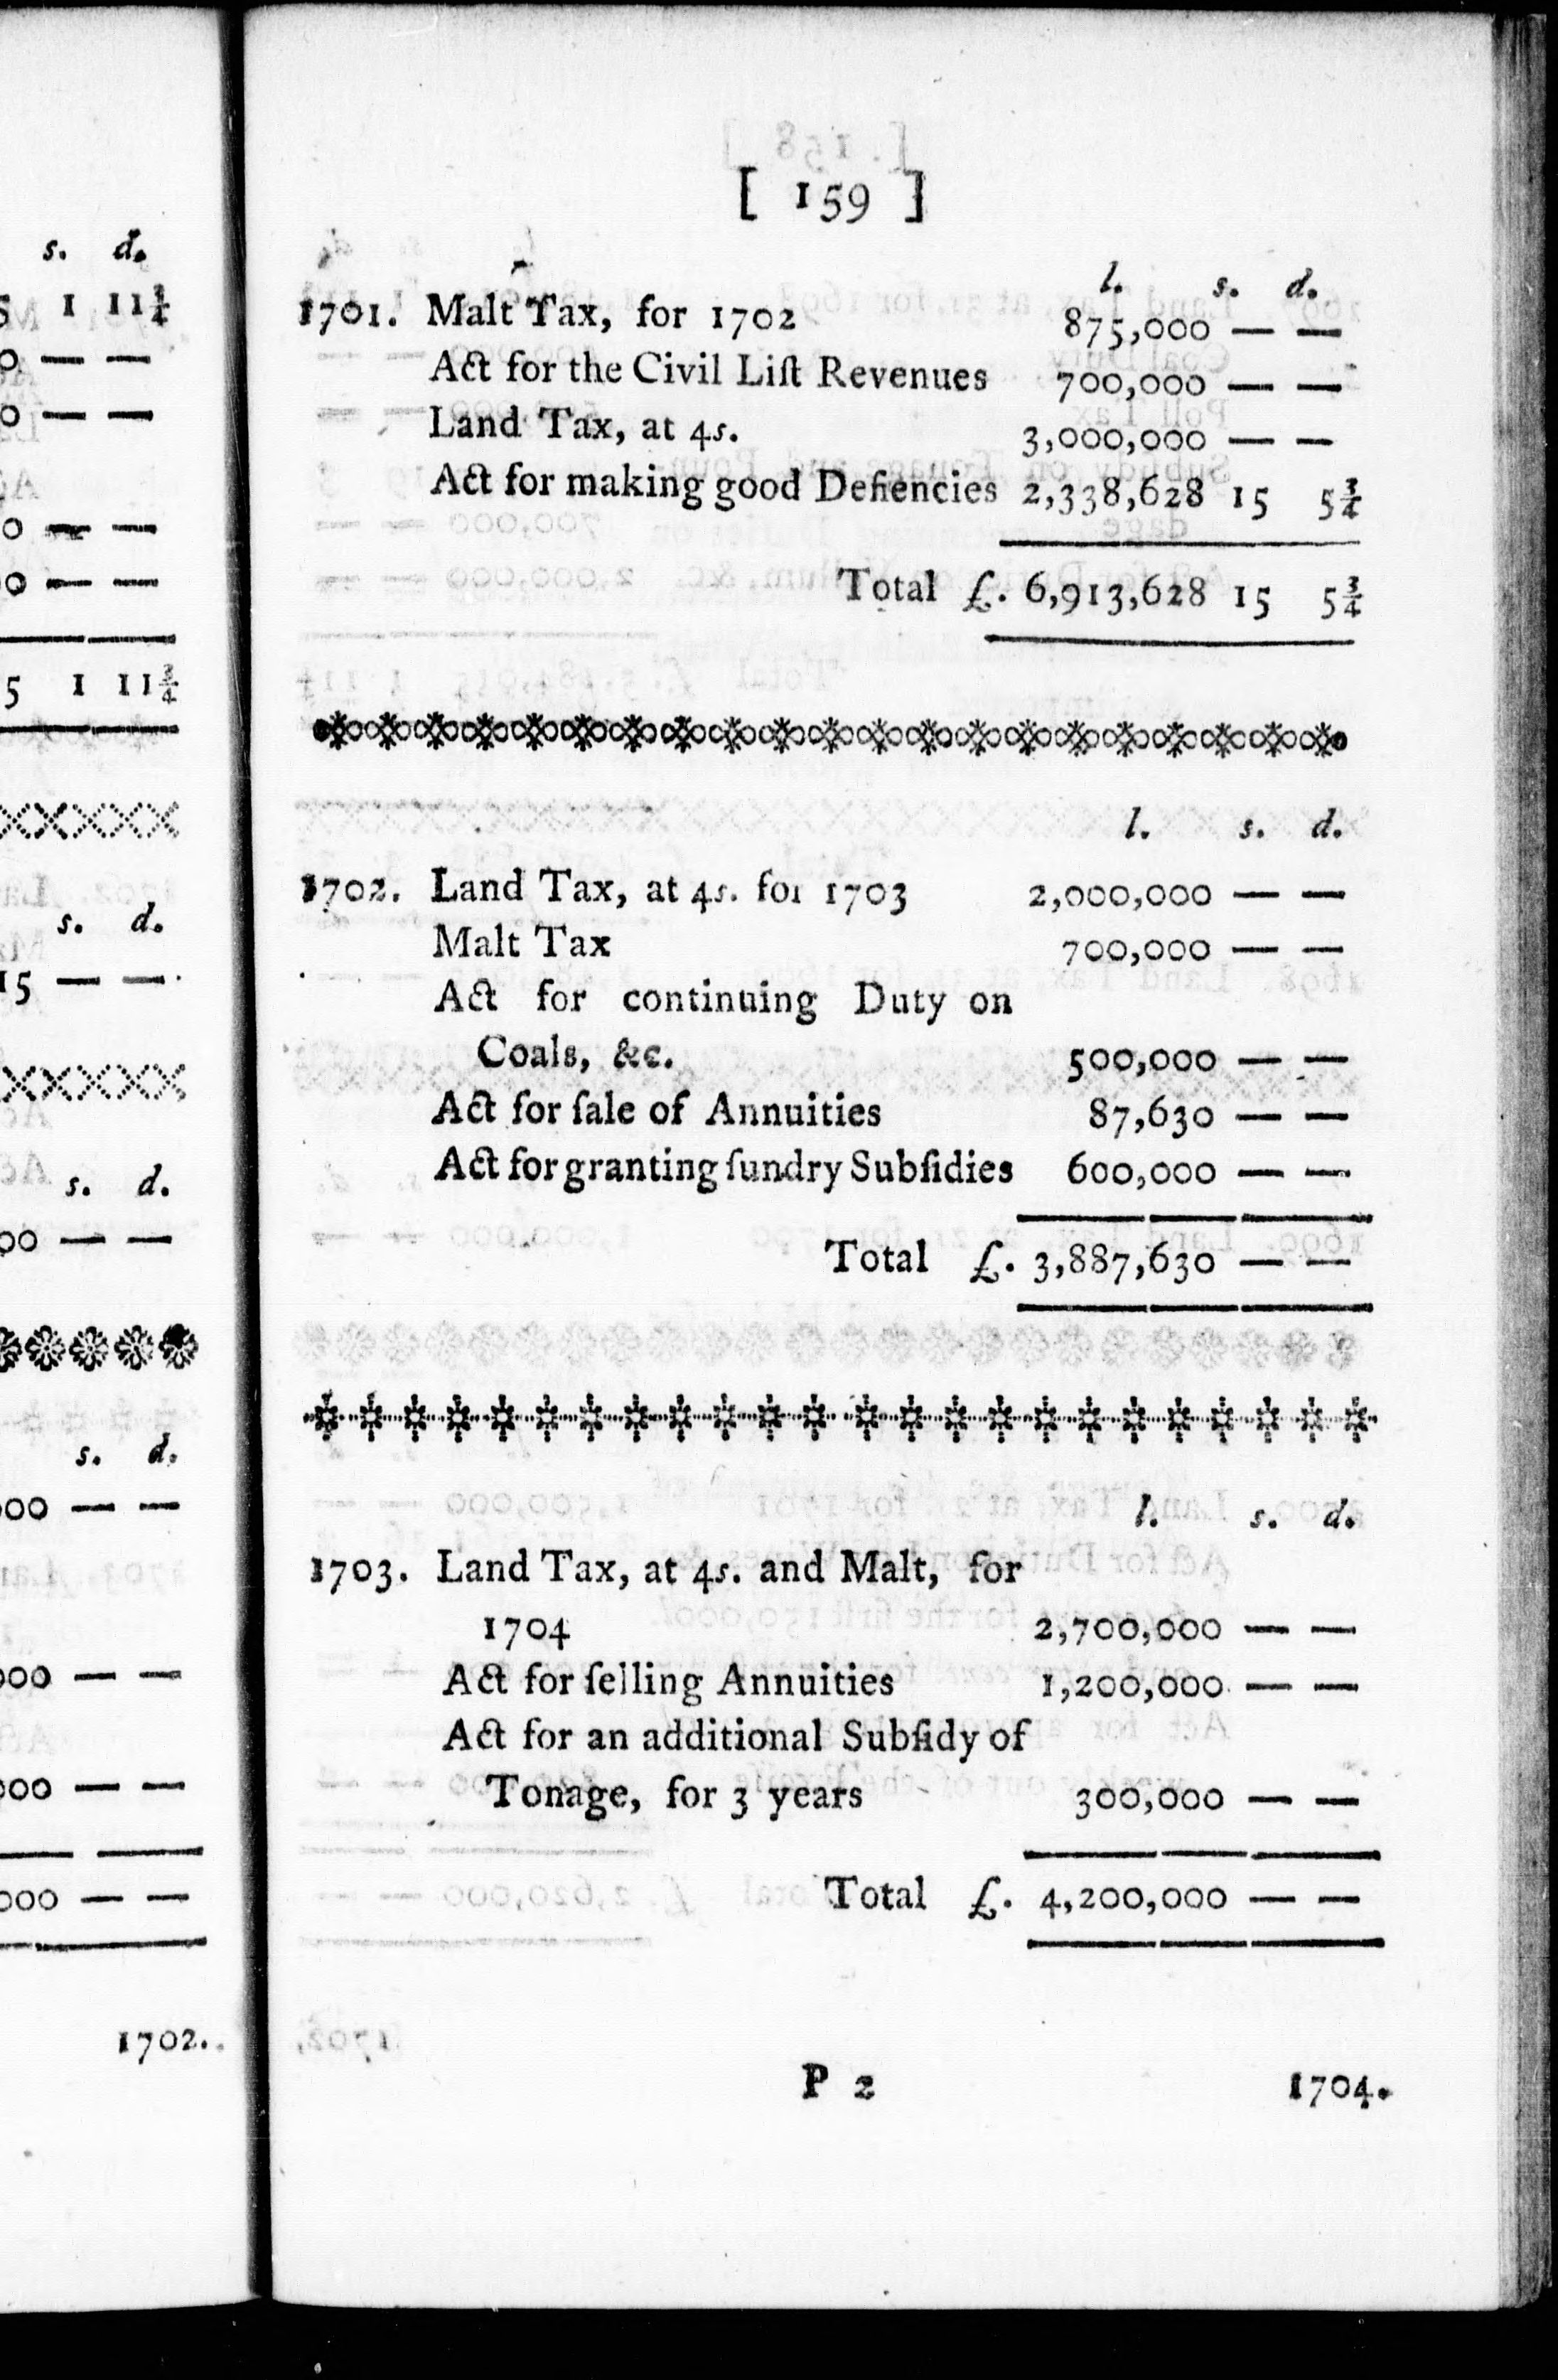 s. d.
1 11¾
0 — —
0 — —
0 — —
0 — —
5 1 11¾
s. d.
15 — —
s. d.
00 — —
s. d.
000 — —
000 — —
000 — —
000 — —
1702.
[ 159 ]
l. s. d.
1701. Malt Tax, for 1702 875,000 — —
Act for the Civil Liſt Revenues 700,000 — —
Land Tax, at 4s. 3,000,000 — —
Act for making good Defiencies 2,338,628 15 5¾
Total £. 6,913,628 15 5¾
l. s. d.
1702. Land Tax, at 4s. for 1703 2,000,000 — —
Malt Tax 700,000 — —
Act for continuing Duty on
Coals, &c. 500,000 — —
Act for ſale of Annuities 87,630 — —
Act for granting ſundry Subſidies 600,000 — —
Total £. 3,887,630 — —
l. s. d.
1703. Land Tax, at 4s. and Malt, for
1704 2,700,000 — —
Act for ſelling Annuities 1,200,000 — —
Act for an additional Subſidy of
Tonage, for 3 years 300,000 — —
Total £. 4,200,000 — —
P 2 1704.